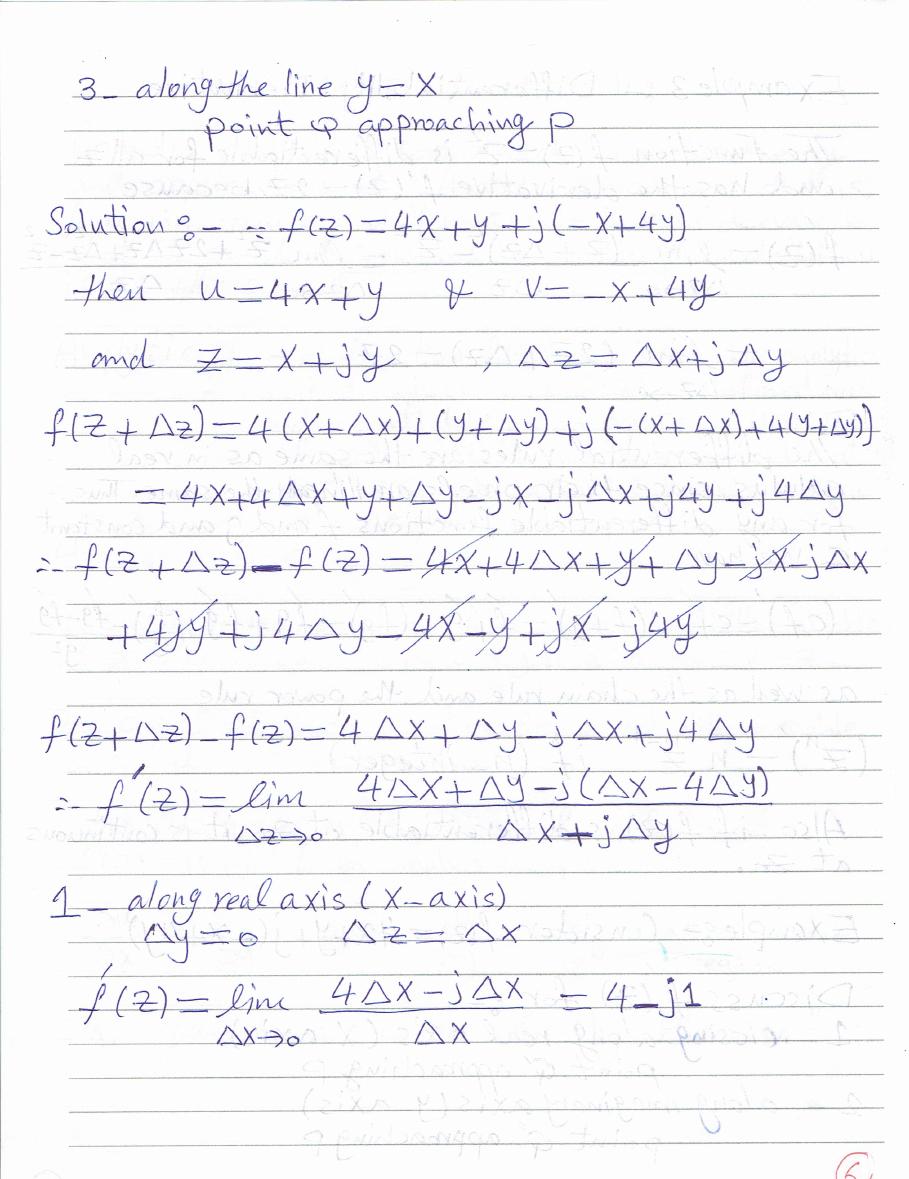 3- along the line y = x
point Q approaching P
Solution :- ∵ f(z) = 4x+y+j(-x+4y)
then u = 4x+y & v = -x+4y
and z = x+jy , Δz = Δx+jΔy
f(z+Δz) = 4(x+Δx)+(y+Δy)+j(-(x+Δx)+4(y+Δy))
= 4x+4Δx+y+Δy-jx-jΔx+j4y+j4Δy
∴ f(z+Δz)-f(z) = 4x+4Δx+y+Δy-jx-jΔx
+4jy+j4Δy-4x-y+jx-j4y
f(z+Δz)-f(z) = 4Δx+Δy-jΔx+j4Δy
∴ f'(z) = lim 4Δx+Δy-j(Δx-4Δy)
Δz→0 Δx+jΔy
1- along real axis (x-axis)
Δy = 0 Δz = Δx
f'(z) = lim 4Δx-jΔx = 4-j1
Δx→0 Δx
6